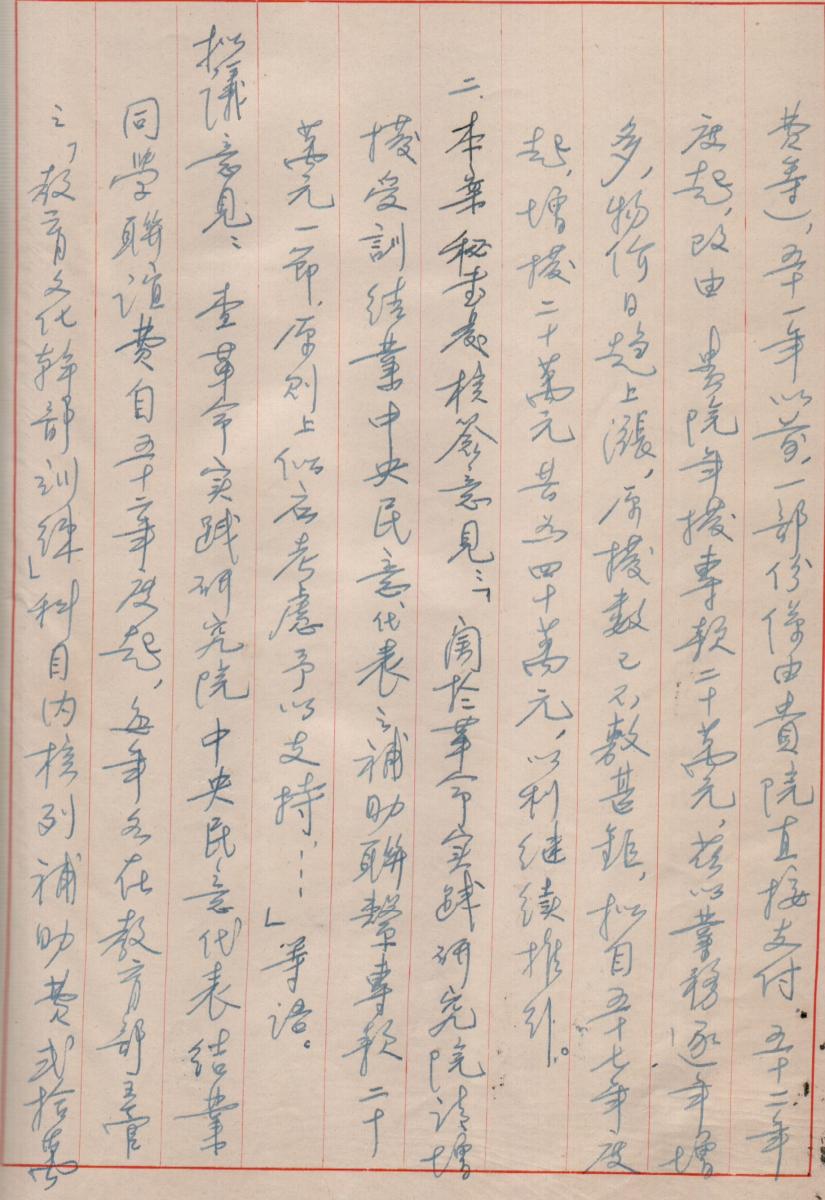 費等），五十一年以前，一部份係由貴院直接支付 五十二年
度起，改由 貴院年撥專款二十萬元，茲以業務逐年增
多，物价日趋上漲，原撥數已不敷甚鉅，拟自五十七年度
起，增撥二十萬元共為四十萬元，以利继续推行。
二、本案秘書處核簽意見：「關於革命实践研究院請增
撥受訓結業中央民意代表之補助聯繫專款二十
萬元一節，原則上似应考慮予以支持……」等語。
拟議意見：查革命实践研究院中央民意代表結業
同學聯誼費自五十二年度起，每年各在教育部主管
之「教育文化幹部训练」科目内核列補助費弍拾萬